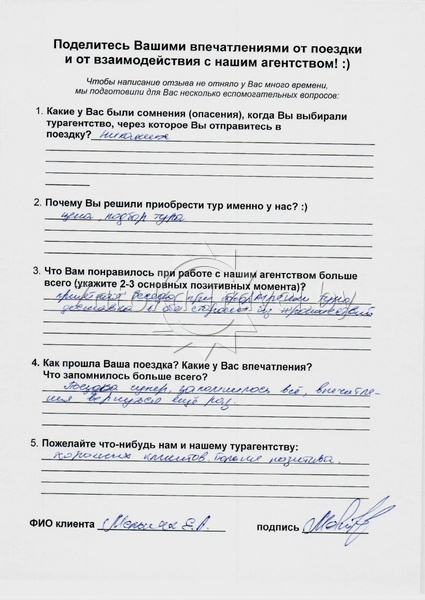 Поделитесь Вашими впечатлениями от поездки
и от взаимодействия с нашим агентством! :)
Чтобы написание отзыва не отняло у Вас много времени,
мы подготовили для Вас несколько вспомогательных вопросов:
1. Какие у Вас были сомнения (опасения), когда Вы выбирали
турагентство, через которое Вы отправитесь в
поездку? Никаких
2. Почему Вы решили приобрести тур именно у нас? :)
цена, подбор тура
3. Что Вам понравилось при работе с нашим агентством больше
всего (укажите 2-3 основных позитивных момента)?
приятная беседа при
доставка
4. Как прошла Ваша поездка? Какие у Вас впечатления?
Что запомнилось больше всего?
Поездка супер, запомнилось всё, впечатле-
ния вернуться ещё раз.
5. Пожелайте что-нибудь нам и нашему турагентству:
хороших клиентов. Больше позитива.
ФИО клиента подпись